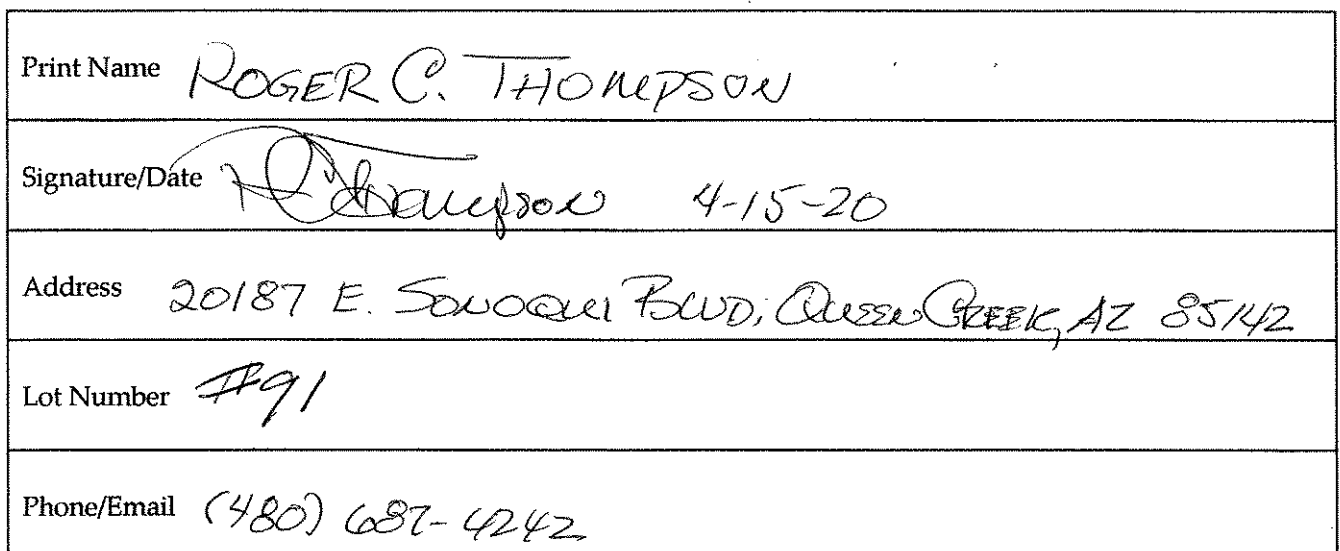 Print Name ROGER C. THOMPSON
Signature/Date RCThompson 4-15-20
Address 20187 E. SONOQUI BLVD; QUEEN CREEK, AZ 85142
Lot Number #91
Phone/Email (480) 687-4242